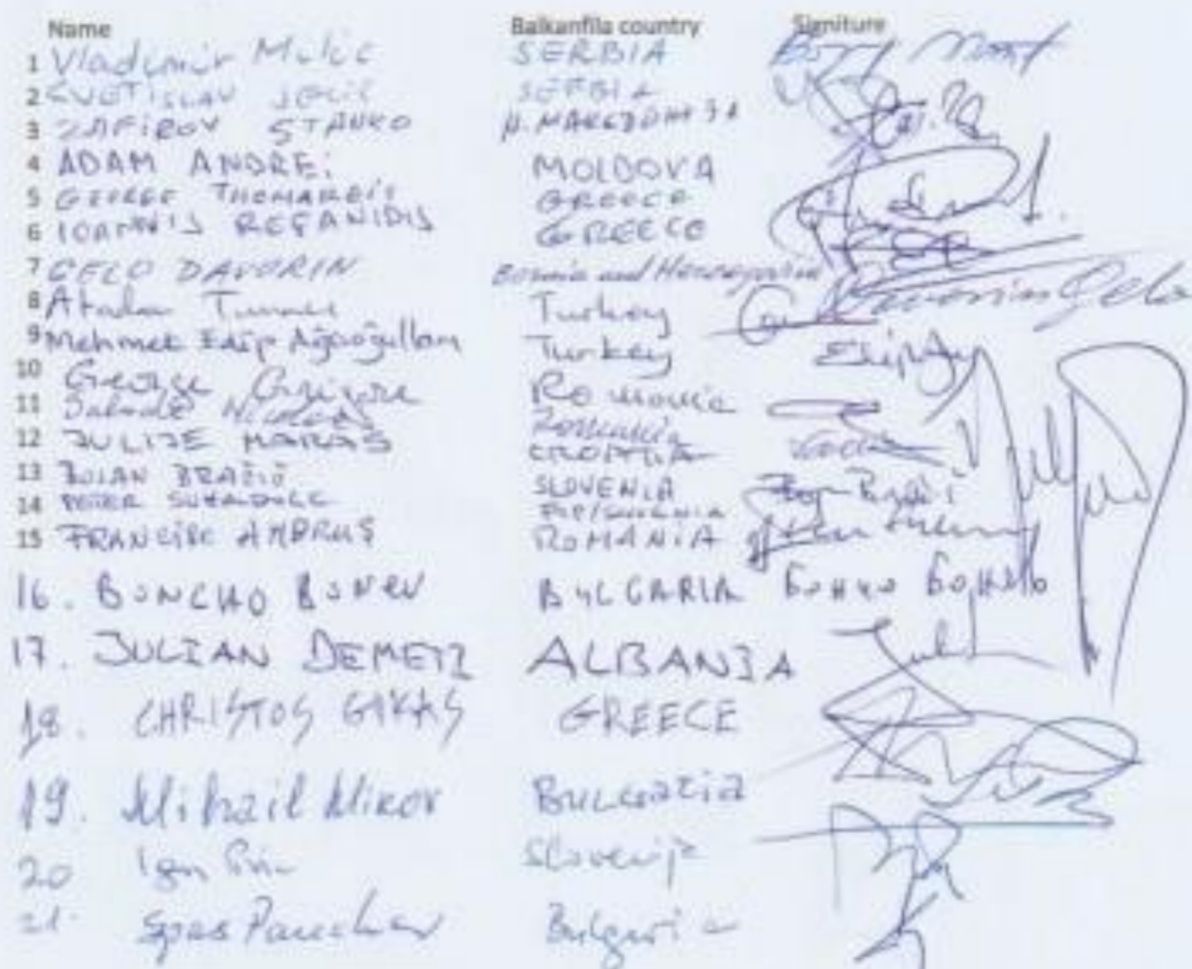 Name Balkanfila country Signiture
1 Vladimir Milic SERBIA
2 SVETISLAV SERBIA
3 ZAFIROV STANKO
4 ADAM ANDREi MOLDOVA
5 GEORGE GREECE
6 IOANNIS REFANIDIS GREECE
7 CELO DAVORIN Bosnia and Herzegovina Davorin Čelo
8 Turkey
9 Mehmet Edip Ağaoğulları Turkey
10 George Grigore Romania
11 Nicolae Romania
12 JULIJE MARAŠ CROATIA
13 BOJAN BRAČIČ SLOVENIA
14 PETER
15 FRANCISC AMBRUȘ ROMÂNIA
16. BONCHO BONEV BULGARIA Бончо
17. JULIAN ALBANIA
18. CHRISTOS GIKAS GREECE
19. Mihail Mikov BULGARIA
20 Slovenija
21. Spas Panchev Bulgaria